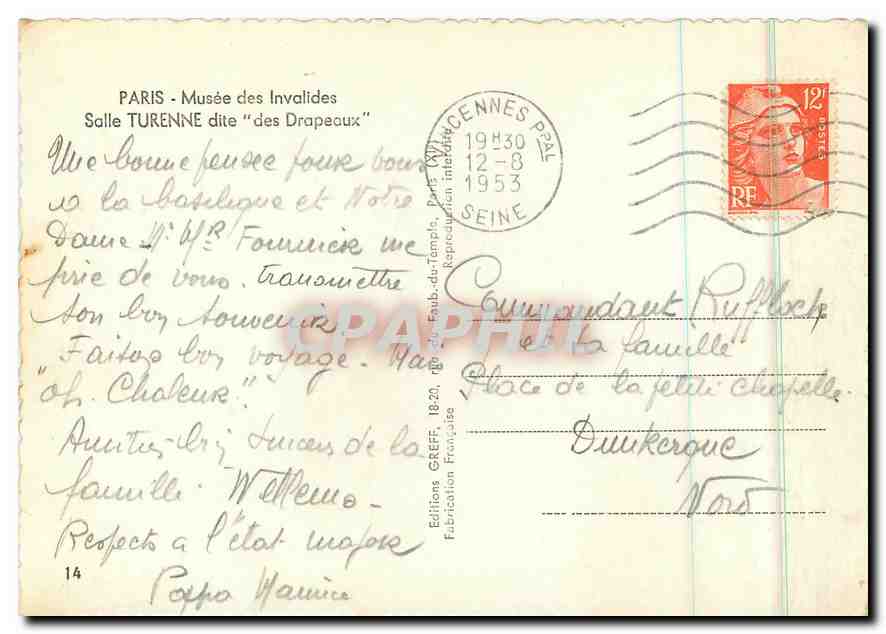 PARIS - Musée des Invalides
Salle TURENNE dite "des Drapeaux"
Une bonne pensée pour vous
a la basilique et Notre
Dame Mr Fournier me
prie de vous transmettre
son bon souvenir.
Faites bon voyage.
"oh. Chaleur".
Amitiés de la
famille Wellems
Respects a l'état major
Papa Maurice
14
Editions GREFF, 18-20, rue du Faub.-du-Temple, Paris (XIe)
Fabrication Française
Reproduction interdite
VINCENNES PPAL
19H30
12-8
1953
SEINE
12F
POSTES
RF
Commandant Ruffloch
et la famille
Place de la petite chapelle.
Dunkerque
Nord
CPAPHIL